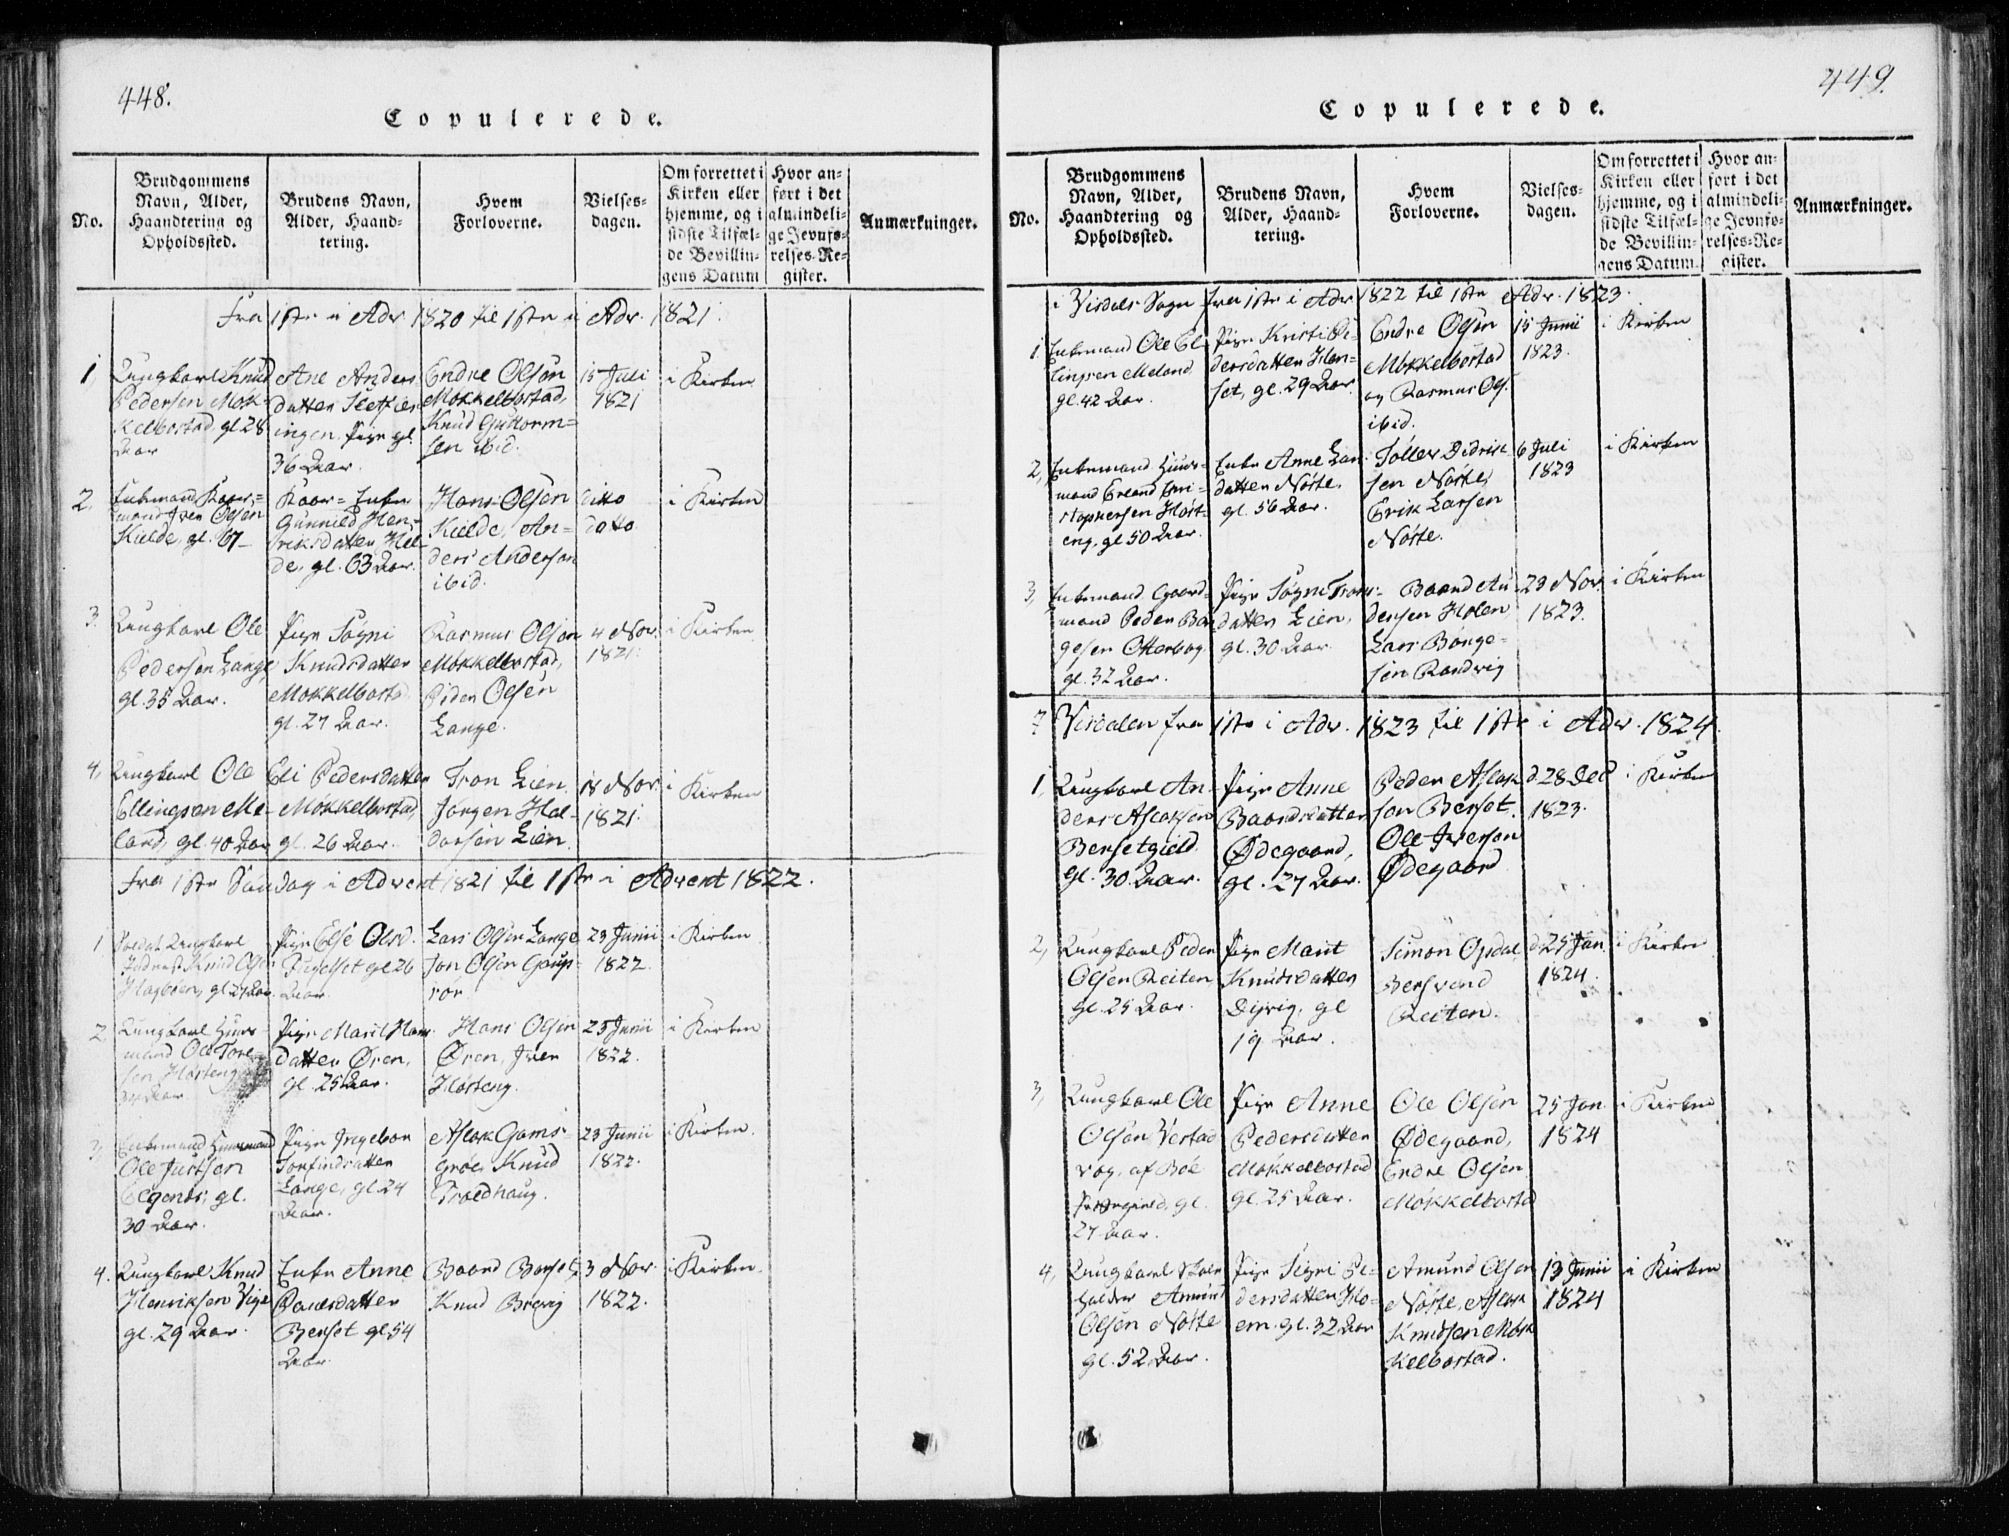 448.
Copulerede.
No.
Brudgommens
Navn, Alder,
Haandtering og
Opholdssted.
Brudens Navn,
Alder, Haand-
tering.
Hvem
Forloverne.
Vielses-
dagen.
Om forrettet i
Kirken eller
hjemme, og i
sidste Tilfæl-
de Bevillin-
gens Datum
Hvor an-
ført i det
almindeli-
ge Jevnfø-
relses-Re-
gister.
Anmærkninger.
Fra 1ste i Adv 1820 til 1ste i Adv. 1821.
1,
Ungkarl Knud
Pedersen Mok-
kelbostad gl 28
Aar
Ane Anders
datter
Pige gl.
36 Aar.
Endre Olsøn
Mokkelbostad,
Knud Guttorm-
sen ibid.
15 Juli
1821
i Kirken
2,
Enkemand Kaar-
mand Iver Olsen
Kielde, gl. 67
Kaar-Enke
Gunnild Hen-
riksdatter Kiel-
de, gl. 63 Aar.
Hans Olsen
Kielde, An-
ders Andersen
ibid.
ditto
datto
i Kirken
3.
Ungkarl Ole
Pedersen Lange
gl. 35 Aar.
Pige Søgni
Knudsdatter
Mokkelbostad
gl. 27 Aar.
Rasmus Olsøn
Mokkelbostad,
Peder Olsen
Lange.
4 Nov.
1821.
i Kirken
4,
Ungkarl Ole
Ellingsen Me-
land, gl. 40 Aar
Eli Pedersdatter
Mokkelbostad,
gl. 26 Aar.
Tron Lien,
Jørgen Hal-
dorsen Lien.
18 Nov.
1821.
i Kirken
Fra 1ste Søndag i Advent 1821 til 1ste i Advent 1822.
1
Soldat Ungkarl
Knud Ols:
gl 27 Aar.
Pige Else Olsd.
gl 26
Aar.
Lars Olsen Lange
Jon Olsen Gaup-
ror
23 Junii
1822.
i Kirken
2
Ungkarl Huus-
mand Ole Tore-
sen Hosteng
Pige Marit Hans
datter Øren,
gl. 25 Aar.
Hans Olsen
Øren, Iver
Hosteng.
23 Junii
1822.
i Kirken
3,
Enkemand Huusmand
Ole
gl.
30 Aar.
Pige Ingebor
Torfindsdatter
Lange, gl 24
Aar.
Aslak Gams-
groe, Knud
Troldhaug.
23 Junii
1822.
i Kirken.
4.
Ungkarl Knud
Henriksen Vige
gl. 29 Aar.
Enke Anne
Berset gl 54
Aar.
Baard Berset,
Knud Brevig
3 Nov.
1822.
i Kirken.
449.
Copulerede.
No.
Brudgommens
Navn, Alder,
Haandtering og
Opholdssted.
Brudens Navn,
Alder, Haand-
tering.
Hvem
Forloverne.
Vielses-
dagen.
Om forrettet i
Kirken eller
hjemme, og i
sidste Tilfæl-
de Bevillin-
gens Datum.
Hvor an-
ført i det
almindeli-
ge Jevnfø-
relses-Re-
gister.
Anmærkninger.
i Visdals Sogn fra 1ste i Adv 1822 til 1ste Adv. 1823.
1
Enkemand Ole El-
lingsen Meland
gl. 42 Aar.
Pige Kristi Pe-
dersdatter Han-
set, gl. 29 Aar.
Endre Olsøn
Mokkelbostad
og Rasmus Ols.
ibid.
15 Junii
1823.
i Kirken
2,
Enkemand Huus-
mand Erland Kri-
stophersen Host-
eng, gl 50 Aar.
Enke Anne Lars
datter Nøste,
gl. 56 Aar.
Toller Didrik
sen Nøste,
Erik Larsen
Nøste.
6 Juli
1823
i Kirken
3,
Enkemand Gaard-
mand Peder Bør-
gesen Otterbog
gl. 32 Aar.
Pige Søgni Trons-
datter Lien,
gl. 30 Aar.
Baard An-
dersen Holen,
Lars Børge-
sen Randvig
23 Nov.
1823.
i Kirken
Visdalen fra 1ste i Adv. 1823 til 1ste i Adv. 1824.
1,
Ungkarl An-
ders Aslaksen
Bersetgield
gl. 30 Aar.
Pige Anne
Baardsdatter
Ødegaard,
gl. 27 Aar.
Peder Aslak
sen Berset.
Ole Iversen
Ødegaard
d 28 Dec
1823.
i Kirken
2,
Ungkarl Peder
Olsen Reiten,
gl. 25 Aar.
Pige Marit
Knudsdatter
Dijrvig, gl
19 Aar.
Simon Opdal,
Bersvend
Reiten.
d 25 Jan.
1824.
i Kirken
3,
Ungkarl Ole
Olsen Vestad
vog, af Boe
Præstegield, gl.
27 Aar.
Pige Anne
Pedersdatter
Mokkelbostad
gl. 25 Aar.
Ole Olsen
Ødegaard,
Endre Olsen
Mokkelbostad
25 Jan.
1824
i Kirken
4,
Ungkarl Skole
holder Amund
Olsen Nøste
gl. 52 Aar.
Pige Signi Pe-
dersdatter Ho-
em. gl. 32 Aar
Amund Olsen
Nøste, Aslak
Knudsen Mok
kelbostad.
13 Junii
1824
i Kirken